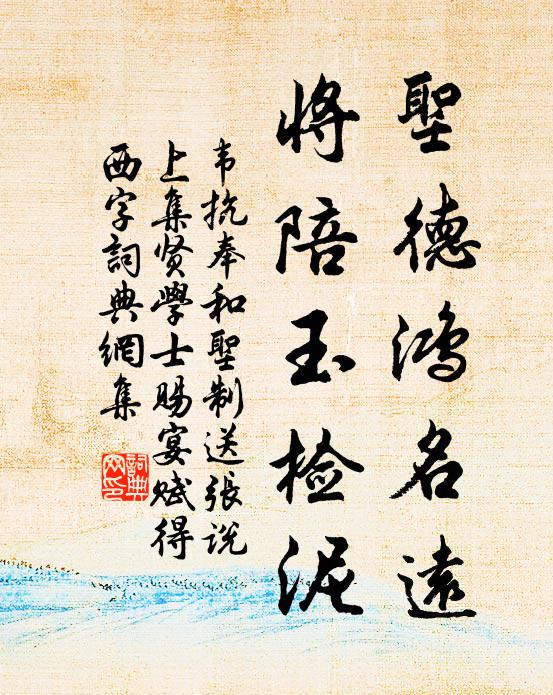 聖德鴻名遠
將陪玉檢泥
韦抗奉和聖制送張说
上集贤學士赐宴赋得
西字詞典網集
詞典
网印